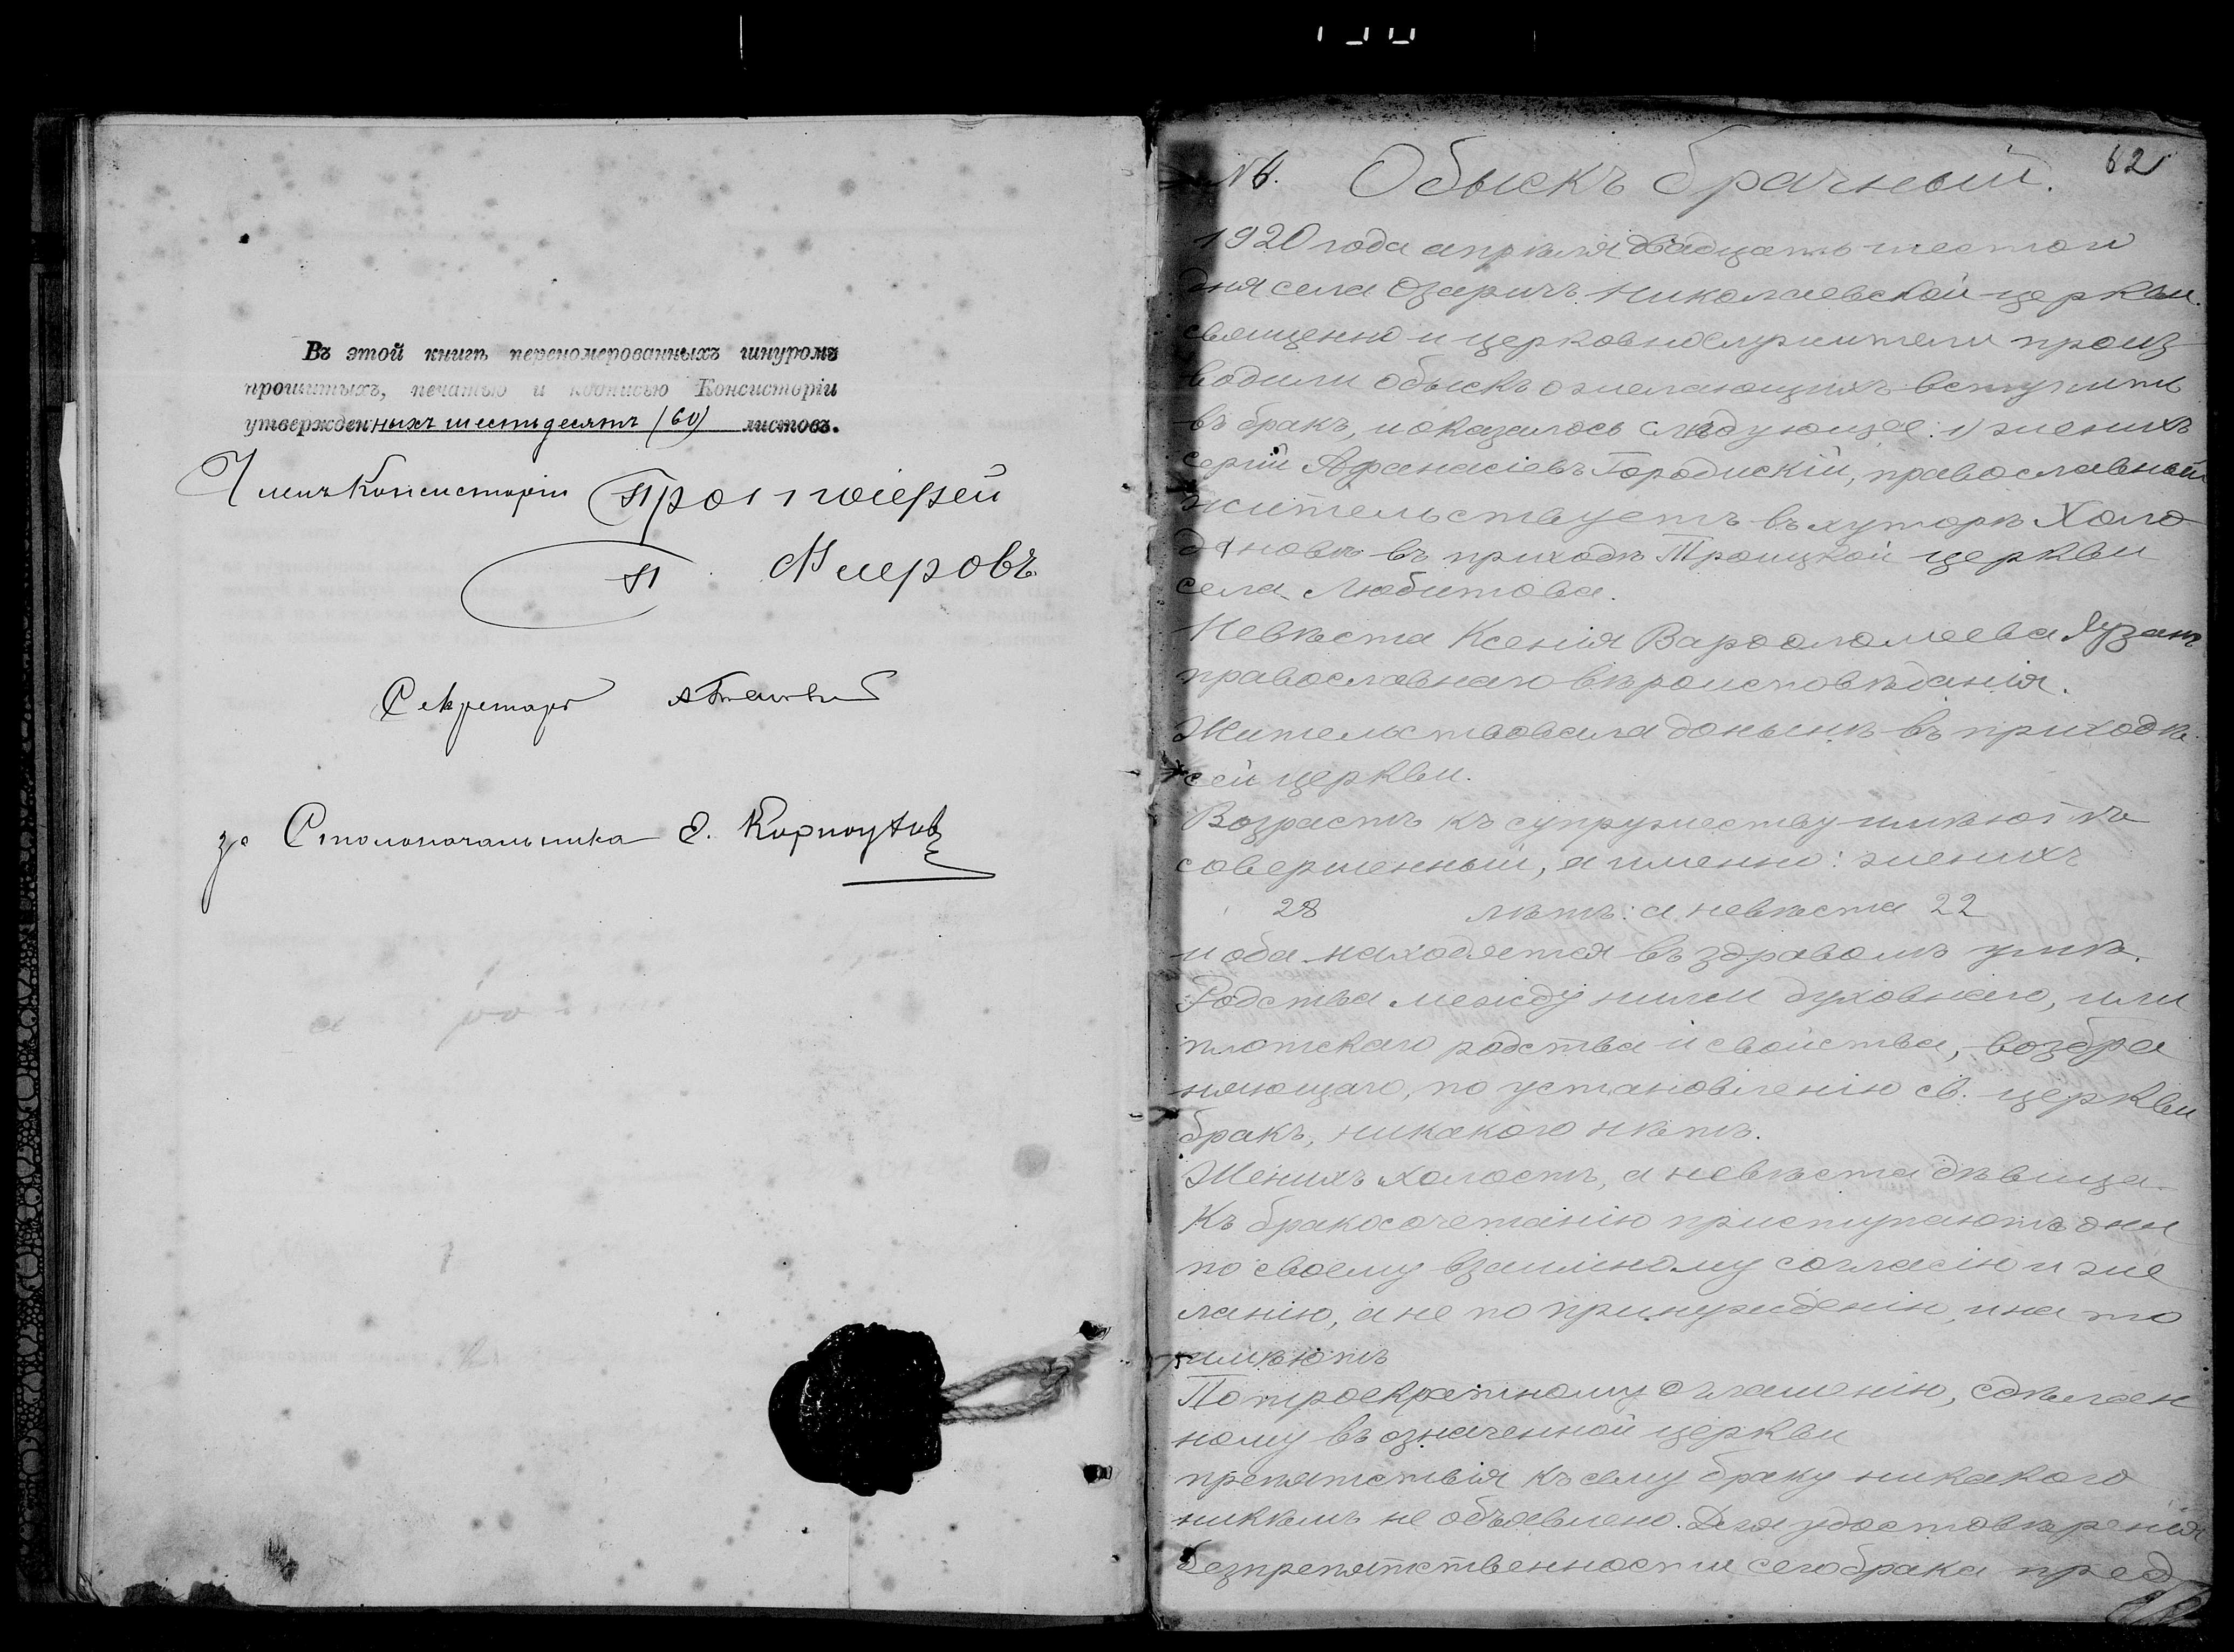 Въ этой книгѣ перономерованныхъ шнуромъ
прошитыхъ, печатью и подписью Консисторіи
утвержденныхъ шестьдесятъ (60) листовъ.
Членъ Консисторіи Протоіерей
П.
Секретарь
за Столоначальника
№ 6. Обыскъ брачный. 62
1920 года апрѣля двадцать шестого
дня села Озаричъ Николаевской церкви
священно и церковнослужители произ
водили обыскъ о желающихъ вступить
въ бракъ, и оказалось слѣдующее: 1) женихъ
Сергій Афанасіевъ Городискій, православный
жительствуетъ въ хуторѣ Холо
дяновкѣ въ приходѣ Троицкой церкви
села Любитова.
Невѣста Ксенія Варфоломеева
православнаго вѣроисповѣданія.
Жительствовала донынѣ въ приходѣ
сей церкви.
Возрастъ къ супружеству имѣютъ
совершенный, а именно: женихъ
28 лѣтъ: а невѣста 22
и оба находятся въ здравомъ умѣ.
Родства между ними духовнаго, или
плотскаго родства и свойства, возбра
няющаго, по установленію св. церкви
бракъ, никакого нѣтъ.
Женихъ холостъ, а невѣста дѣвица
Къ бракосочетанію приступаютъ они
по своему взаимному согласію и же
ланію, а не по принужденію, и на то
имѣютъ
По троекратному оглашенію, сдѣлан
ному въ означенной церкви
препятствія къ сему браку никакого
никѣмъ не объявлено. Для удостовѣренія
безпрепятственности сего брака пред